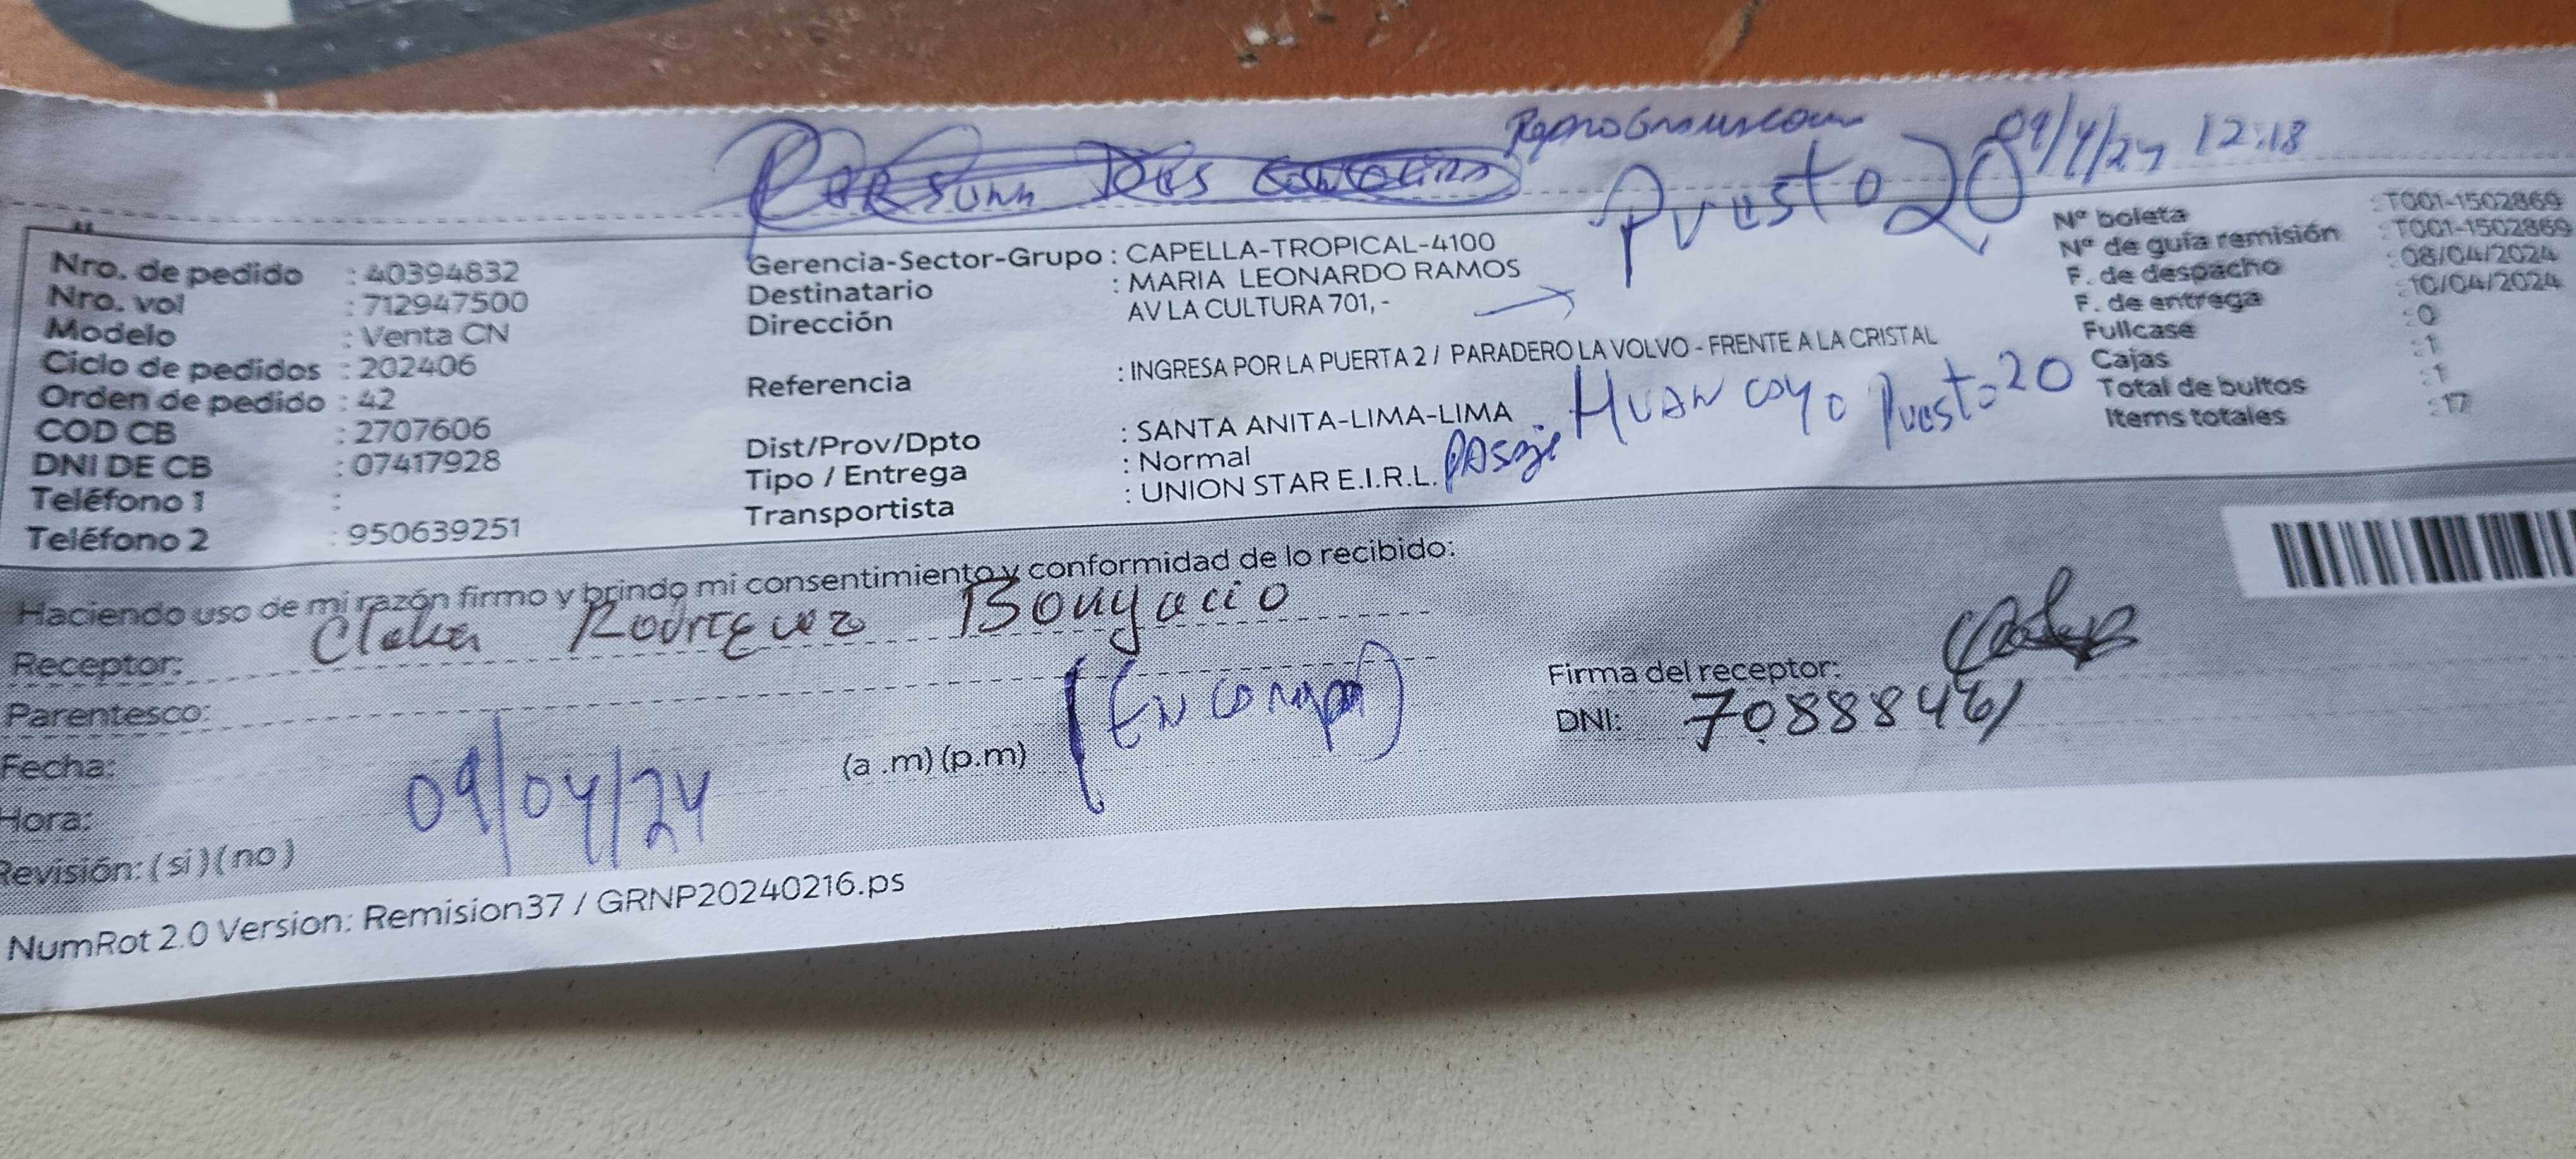 Puesto 20 09/4/24 12:18
Nro. de pedido : 40394832
Nro. vol : 712947500
Modelo : Venta CN
Ciclo de pedidos : 202406
Orden de pedido : 42
COD CB : 2707606
DNI DE CB : 07417928
Teléfono 1 :
Teléfono 2 : 950639251
Gerencia-Sector-Grupo : CAPELLA-TROPICAL-4100
Destinatario : MARIA LEONARDO RAMOS
Dirección AV LA CULTURA 701, -
Referencia : INGRESA POR LA PUERTA 2 / PARADERO LA VOLVO - FRENTE A LA CRISTAL
Dist/Prov/Dpto : SANTA ANITA-LIMA-LIMA
Tipo / Entrega : Normal
Transportista : UNION STAR E.I.R.L.
PASaje HUANCAYO Puesto-20
N° boleta : T001-1502869
N° de guía remisión : T001-1502869
F. de despacho : 08/04/2024
F. de entrega : 10/04/2024
Fullcase : 0
Cajas : 1
Total de bultos : 1
Items totales : 17
Haciendo uso de mi razón firmo y brindo mi consentimiento y conformidad de lo recibido:
Receptor: Rodriguez
Parentesco:
Fecha: 09/04/24
Hora: (a .m) (p.m)
Revisión: (si) (no)
Firma del receptor:
DNI: 70888461
NumRot 2.0 Version: Remision37 / GRNP20240216.ps